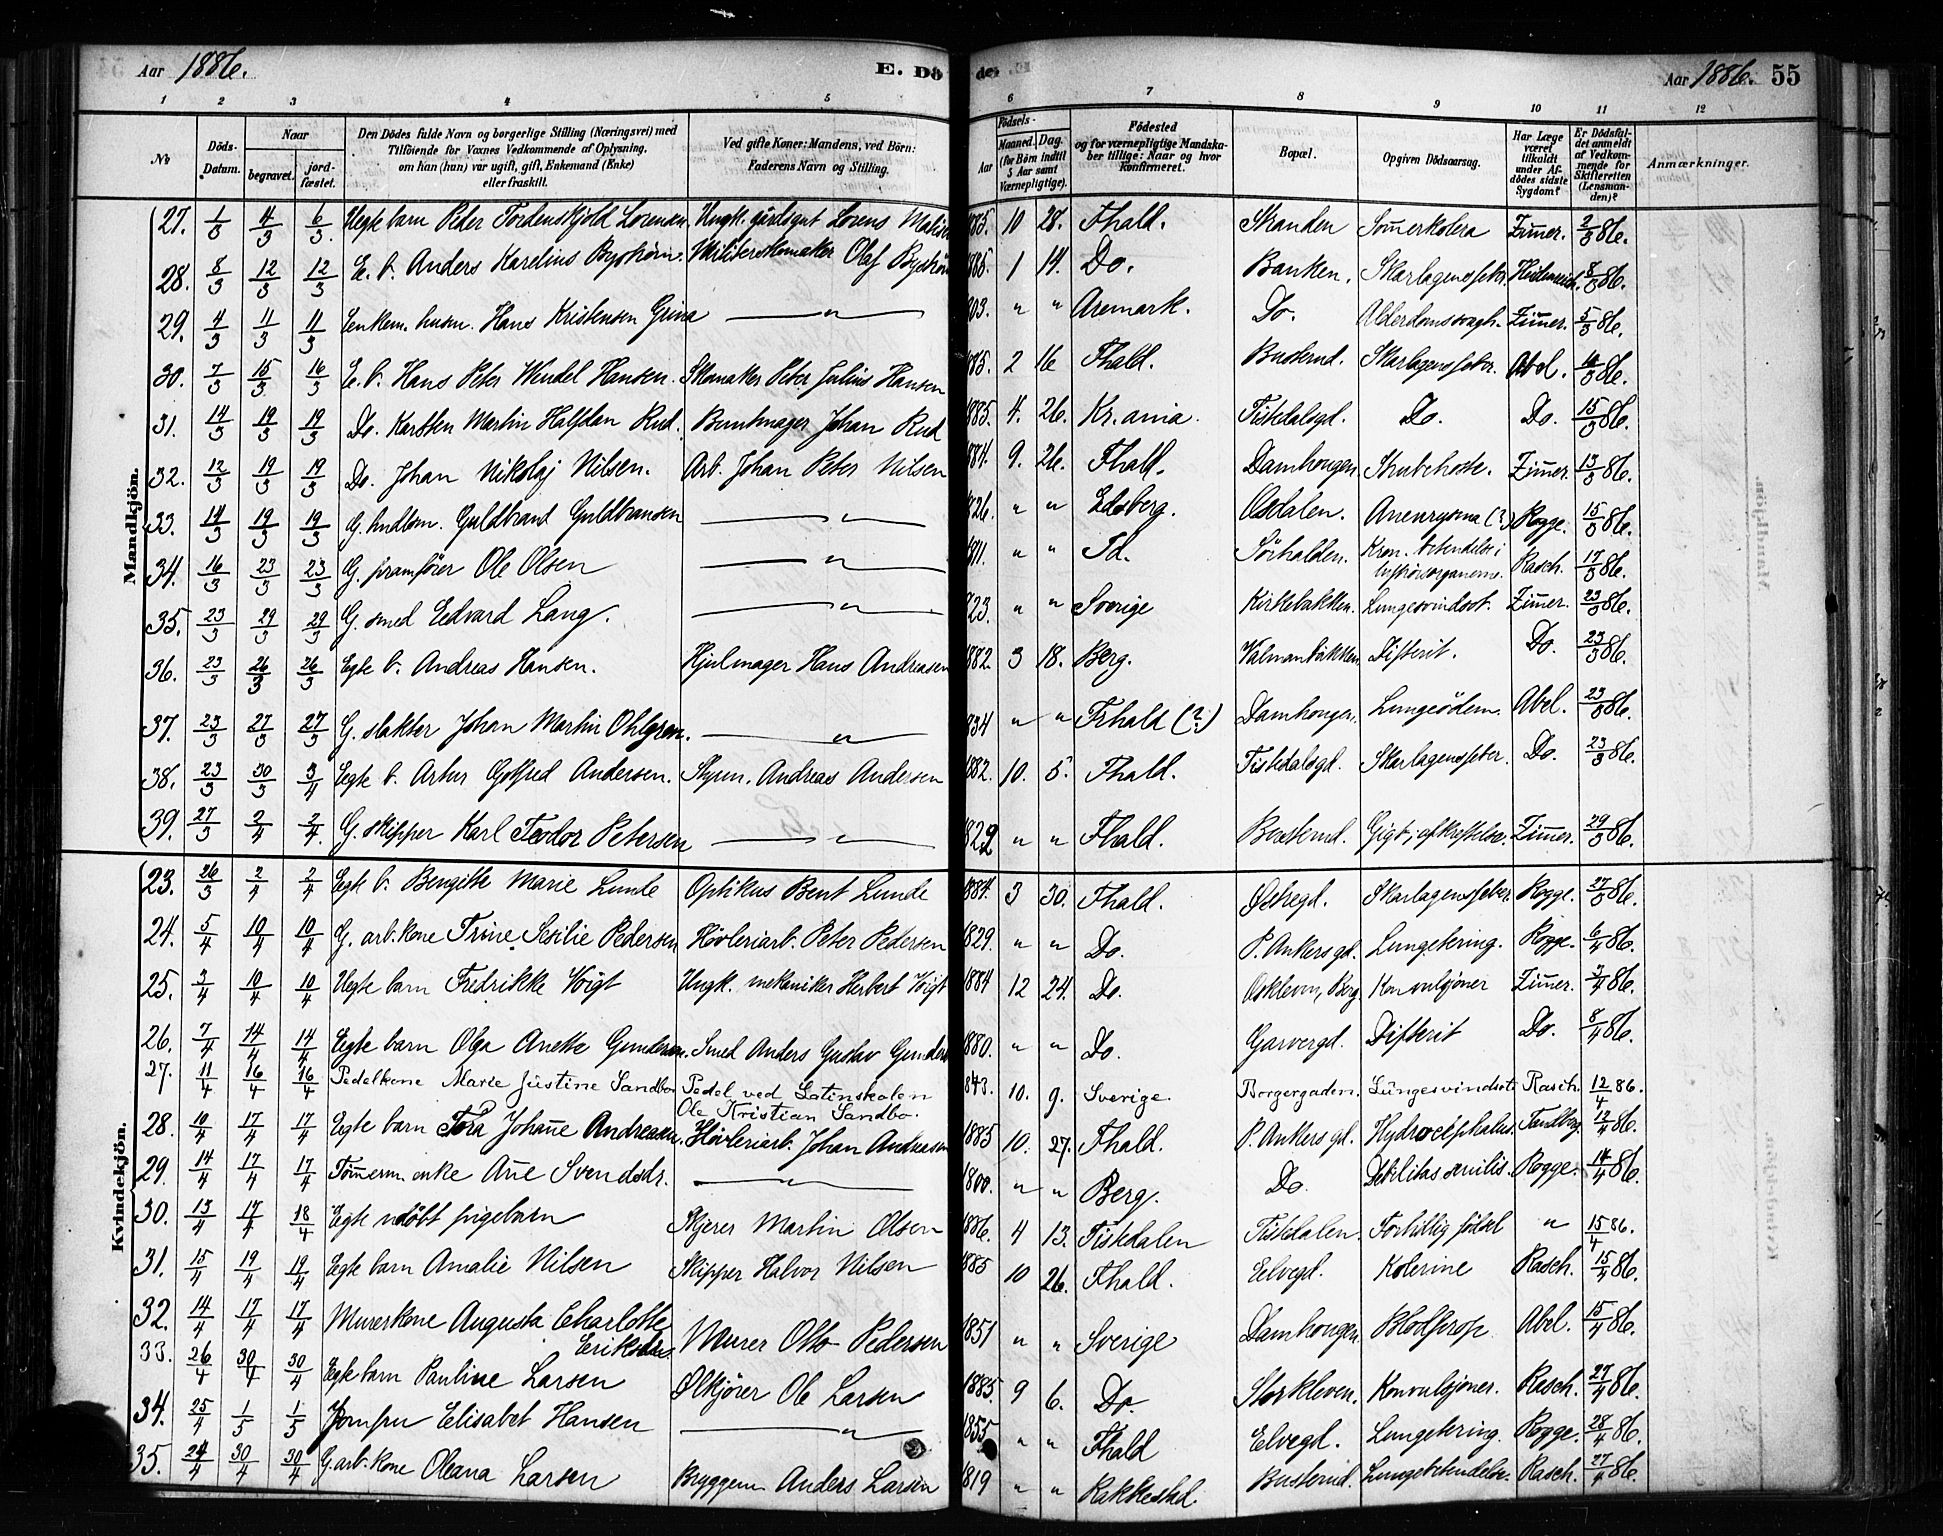 Aar 1886.
E. Dö
der.
Aar 1886. 55
1 2 3 4 5 6 7 8 9 10 11 12
No
Döds-Datum.
Naar
begravet.
jordfæstet.
Den Dödes fulde Navn og borgerlige Stilling (Næringsvei) med
Tilföiende for Voxnes Vedkommende af Oplysning,
om han (hun) var ugift, gift, Enkemand (Enke)
eller fraskilt.
Ved gifte Koner: Mandens, ved Börn:
Faderens Navn og Stilling.
Födsels-
Aar
Maaned. Dag.
(for Börn indtil
5 Aar samt
Værnepligtige).
Födested
og for værnepligtige Mandska-
ber tillige: Naar og hvor
Konfirmeret.
Bopæl.
Opgiven Dödsaarsag.
Har Læge
været
tilkaldt
under Af-
dödes sidste
Sygdom?
Er Dödsfal-
det anmeldt
af Vedkom-
mende for
Skifteretten
(Lensman-
den)?
Anmærkninger.
Mandkjön.
27. 1/3 4/3 6/3. Uegte barn Peder Tordenskjold Lorensen. Ungk. gårdsgut Lorens 885. 10 28. Fhald. Stranden Sommerkolera Zimmer. 2/3 86.
28. 8/3 12/3 12/3 E. b. Anders Karelius Byström. Militærskomaker Olaf Byström 885. 1 14. Do. Banken. Skarlagensfeber. 8/3 86.
29. 4/3 11/3 11/3 Enkem. husm. Hans Kristensen Grina — " — 803. " " Aremark. Do. Alderdomssvagh. Zimmer. 5/3 86.
30. 7/3 15/3 16/3 E. b. Hans Peter Wendel Hansen. Skomaker Peter Julius Hansen 885. 2 16 Fhald. Busterud. Skarlagensfeber. Abel. 14/3 86.
31. 14/3 19/3 19/3 Do. Karsten Martin Halfdan Rud. Buntmager Johan Rud 885. 4. 26. Kr.ania. Tistedalsgd. Do. Do. 15/3 86.
32. 12/3 19/3 19/3 Do. Johan Nikolaj Nilsen. Arb. Johan Peter Nilsen 884. 9. 26. Fhald. Damhougen Strubehoste. Zimmer. 13/3 86.
33. 14/3 19/3 19/3 G. Guldbrand Guldbransen — " — 826. " " Edsberg. Osdalen. Aneurysma (?) Rogge. 15/3 86.
34. 16/3 23/3 23/3 G. pramförer Ole Olsen — " — 811. " " Id. Sörhalden. Kron. betendelse i luftrörsorganerne. Rasch. 17/3 86.
35. 23/3 29/3 29/3 G. smed Edvard Lang. — " — 823. " " Sverige Kirkebakken. Lungesvindsot. Zimmer. 23/3 86.
36. 23/3 26/3 26/3 Egte b. Andreas Hansen. Hjulmager Hans Andreasen 1882. 3 18. Berg. Valmanbakken Difterit. Do. 23/3 86.
37. 23/3 27/3 27/3 G. slakter Johan Martin Ohlgren. — " — 834 " " Frhald (?) Damhougen. Lungeödem. Abel. 23/3 86.
38. 23/3 30/3 3/4 Egte b. Artur Gotfred Andersen. Styrm. Andreas Andersen 1882. 10. 5. Fhald. Tistedalsgd. Skarlagensfeber. Do. 23/3 86.
39. 27/3 2/4 2/4. G. skipper Karl Teodor Petersen — " — 1822 " " Fhald. Busterud. Gigt; afkræftelse. Zimmer. 29/3 86.
Kvindekjön.
23. 26/3 2/4 2/4 Egte b. Bengitte Marie Lunde Optikus Bent Lunde 1884. 3 30. Fhald. Östregd. Skarlagensfeber. Rogge. 27/3 86.
24. 5/4 10/4 10/4 G. arb.kone Trine Sesilie Pedersen Høvleriarb. Peter Pedersen 1829. " " Do. P. Ankers gd. Lungetering. Rogge. 6/4 86.
25. 3/4 10/4 10/4 Uegte barn Fredrikke Voigt Ungk. mekaniker Herbert Voigt 1884 12 24. Do. Oskleven, Berg Konvulsjoner Zimmer. 3/4 86.
26. 7/4 14/4 14/4 Egte barn Olga Anette Gundersen. Smed Anders Gustav Gunders 1880. " " Do. Garvergd. Difterit Do. 8/4 86.
27. 11/4 16/4 16/4 Pedelkone Marie Justine Sandbo Pedel ved Latinskolen
Ole Kristian Sandbo. 843. 10. 9. Sverige. Borgergaden. Lungesvindsot Rasch. 12/4 86.
28. 10/4 17/4 17/4 Egte barn Tora Johanne Andreasen. Høvleriarb. Johan Andreasen 1885 10. 27. Fhald. P. Ankers gd. Hydrocephalus. Tandberg. 12/4 86.
29. 14/4 17/4 17/4 Tømmerm. enke Anne Svendsdr. — " — 1800. " " Berg. Do Debilitas senilis. Rogge. 14/4 86.
30. 13/4 17/4 18/4 Egte udöbt pigebarn Kjører Martin Olsen 1886. 4 13. Tistedalen Tistedalen. Fortidlig födsel " 15/4 86.
31. 15/4 19/4 19/4 Egte barn Amalie Nilsen Skipper Halvor Nilsen 1885 10 26. Fhald. Elvegd. Kolerine Rasch. 15/4 86.
32. 14/4 17/4 17/4 Murerkone Augusta Charlotte
Eriksdtr. Murer Otto Pedersen 1851 " " Sverige Damhougen Blodprop Abel. 15/4 86.
33. 26/4 30/4 30/4 Egte barn Pauline Larsen Ølkjører Ole Larsen 1885 9 6. Do. Storkleven. Konvulsjoner. Rasch. 27/4 86.
34. 25/4 1/5 1/5 Jomfru Elisabet Hansen — " — 1855 " " Fhald Elvegd. Lungetering. Rogge. 28/4 86.
35. 24/4 30/4 30/4 G. arb. kone Oleana Larsen Bryggem. Anders Larsen 1819 " " Rakkestad. Busterud. Lungebetendelse. Rasch. 27/4 86.